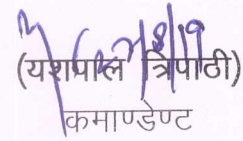 (यशपाल त्रिपाठी)
कमाण्डेण्ट